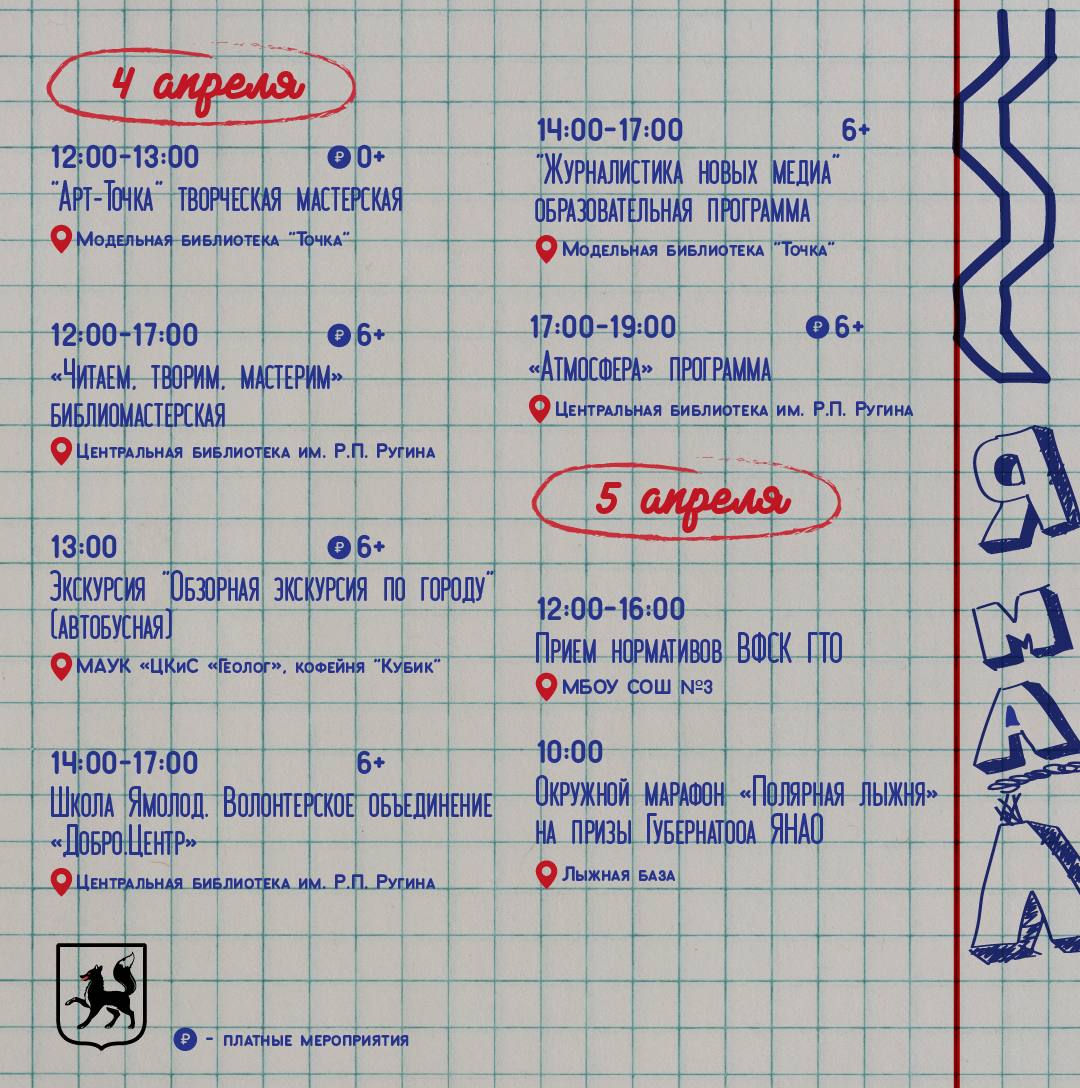 4 апреля
12:00-13:00 ₽ 0+
"Арт-Точка" творческая мастерская
Модельная библиотека "Точка"
12:00-17:00 ₽ 6+
«Читаем, творим, мастерим»
библиомастерская
Центральная библиотека им. Р.П. Ругина
13:00 ₽ 6+
Экскурсия "Обзорная экскурсия по городу"
(автобусная)
МАУК «ЦКиС «Геолог», кофейня "Кубик"
14:00-17:00 6+
Школа Ямолод. Волонтерское объединение
«Добро.Центр»
Центральная библиотека им. Р.П. Ругина
14:00-17:00 6+
"Журналистика новых медиа"
образовательная программа
Модельная библиотека "Точка"
17:00-19:00 ₽ 6+
«Атмосфера» программа
Центральная библиотека им. Р.П. Ругина
5 апреля
12:00-16:00
Прием нормативов ВФСК ГТО
МБОУ СОШ №3
10:00
Окружной марафон «Полярная лыжня»
на призы Губернатооа ЯНАО
Лыжная база
₽ - платные мероприятия
Я
М
А
Л